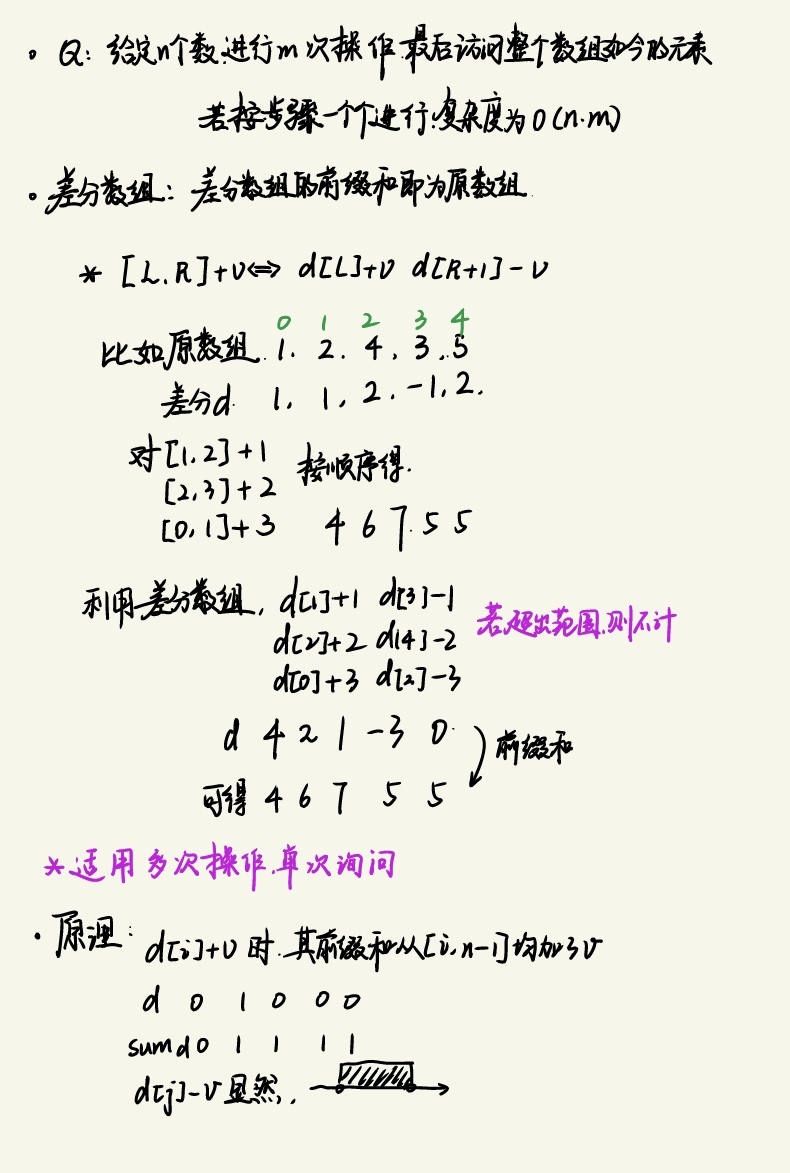 • Q: 给定n个数.进行m次操作.最后访问整个数组如今的元素
若按步骤一个个进行.复杂度为O(n·m)
• 差分数组: 差分数组的前缀和即为原数组.
* [L,R]+v⟺ d[L]+v d[R+1]-v
0 1 2 3 4
比如原数组. 1. 2. 4, 3, 5
差分d. 1, 1, 2. -1, 2.
对[1,2]+1 按顺序得.
[2,3]+2
[0,1]+3 4 6 7 5 5
利用差分数组, d[1]+1 d[3]-1
若超出范围,则不计
d[2]+2 d[4]-2
d[0]+3 d[2]-3
d 4 2 1 -3 0
前缀和
可得 4 6 7 5 5
*适用多次操作.单次询问
• 原理:
d[i]+v时.其前缀和从[i,n-1]均加了v
d 0 1 0 0 0
sumd 0 1 1 1 1
d[j]-v显然,.